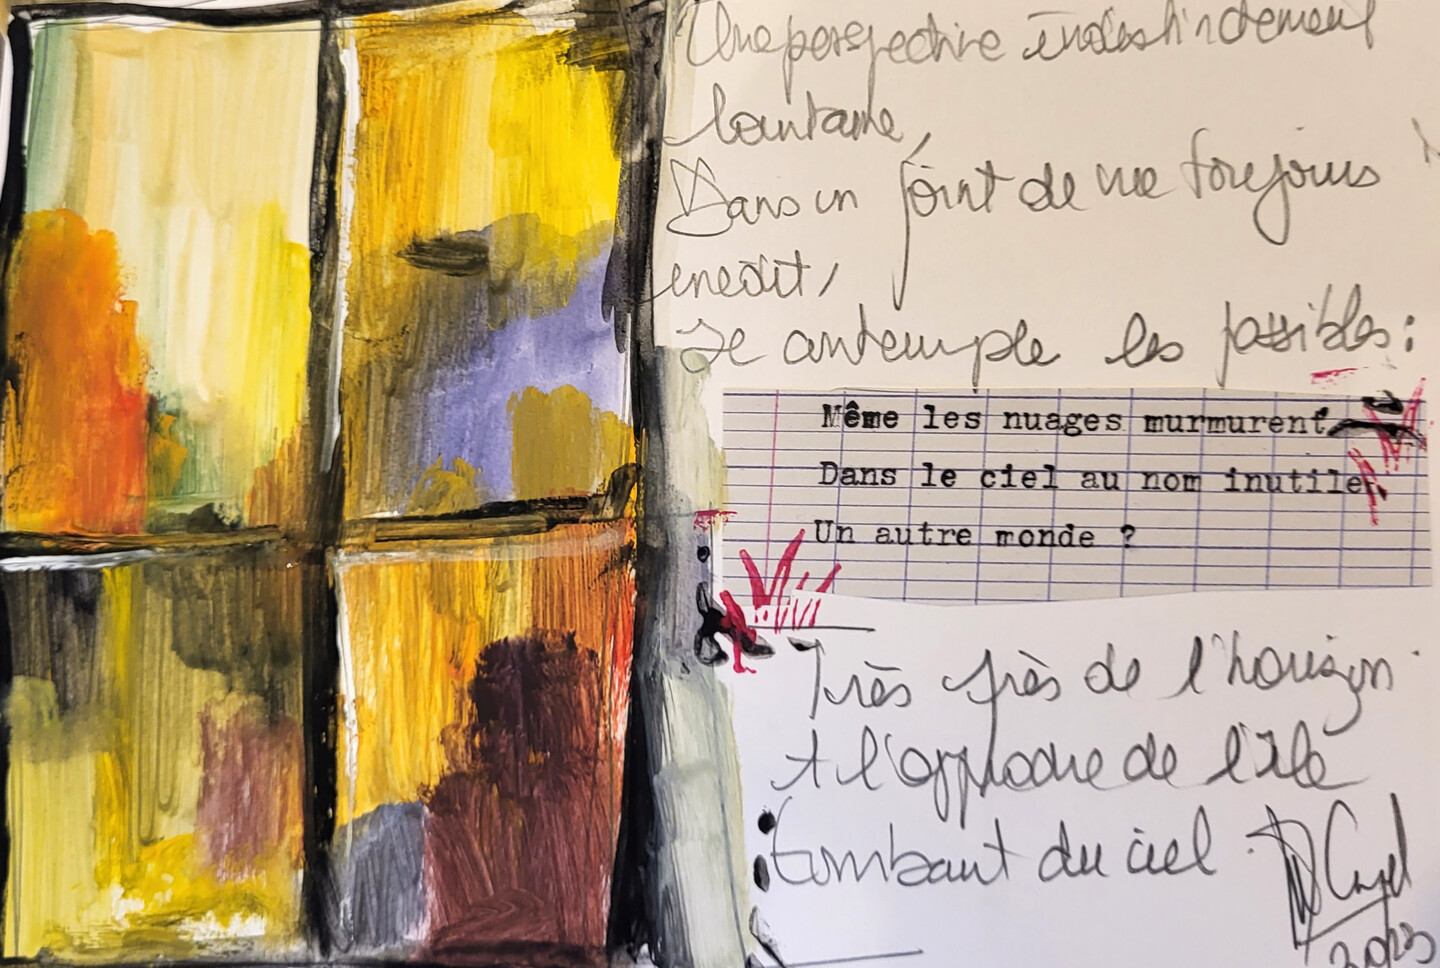 Une perspective indistinctement
lointaine,
Dans un point de vue toujours
inédit,
Je contemple les possibles :
Même les nuages murmurent
Dans le ciel au nom inutile
Un autre monde ?
Très près de l'horizon
A l'approche de l'île
tombant du ciel.
2023